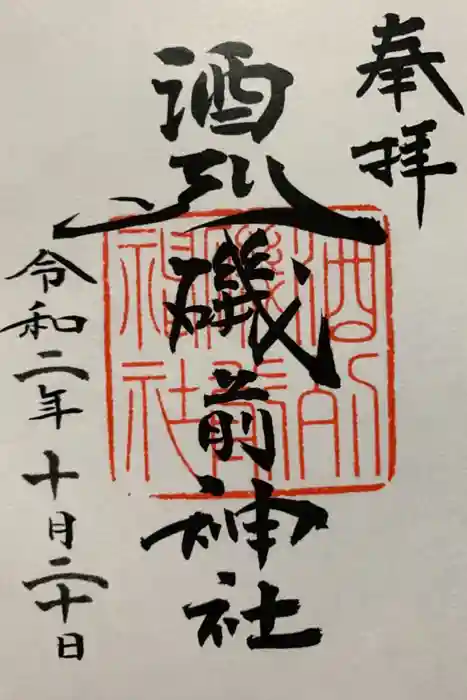 奉拝
酒列磯前神社
令和二年十月二十日
酒列
磯前
神社